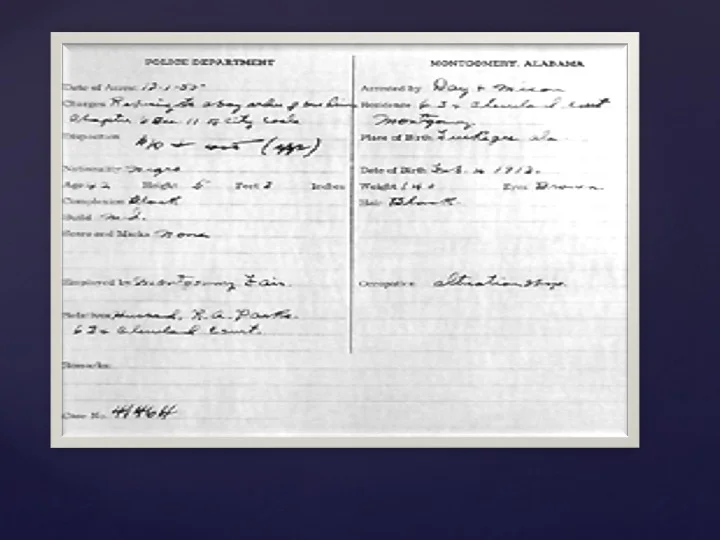 POLICE DEPARTMENT
MONTGOMERY, ALABAMA
Date of Arrest 12-1-55
Arrested by Day & Mixon
Charges Refusing to obey order of bus
Residence 634 Cleveland Court
Chapter 6 Sec 11 of City code
Montgomery
Disposition
Place of Birth Tuskegee ala
$10 + cost (app)
Nationality Negro
Date of Birth Feb. 4 1913.
Age 42 Height 5 Feet 3 Inches
Weight 140 Eyes Brown
Complexion Black
Hair Black
Build Med.
Scars and Marks None
Employed by Montgomery Fair.
Occupation
Relatives Husband, R. A. Parks.
634 Cleveland Court.
Remarks
Case No.